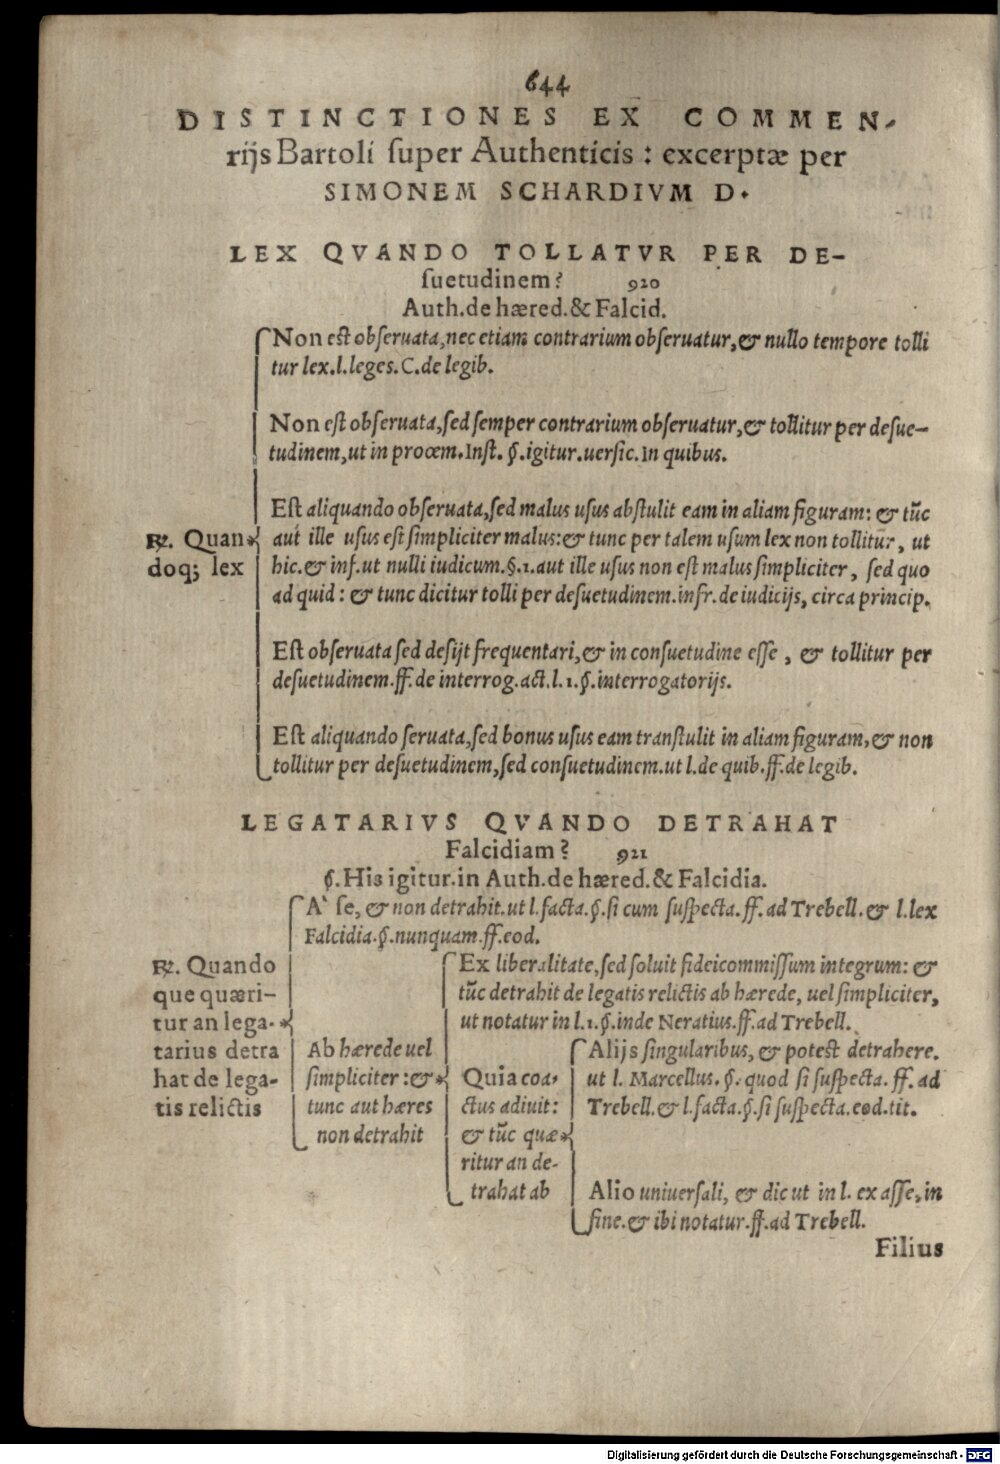 644
DISTINCTIONES EX COMMEN-
rijs Bartoli super Authenticis : excerptæ per
SIMONEM SCHARDIVM D.
LEX QVANDO TOLLATVR PER DE-
suetudinem? 920
Auth.de hæred.& Falcid.
Non est obseruata,nec etiam contrarium obseruatur,& nullo tempore tolli
tur lex.l.leges.C.de legib.
Non est obseruata,sed semper contrarium obseruatur,& tollitur per desue-
tudinem,ut in proœm.Inst. §.igitur.uersic.In quibus.
Est aliquando obseruata,sed malus usus abstulit eam in aliam figuram: & tūc
℞. Quan
doq; lex
aut ille usus est simpliciter malus:& tunc per talem usum lex non tollitur, ut
hic.& inf.ut nulli iudicum.§.1.aut ille usus non est malus simpliciter, sed quo
ad quid: & tunc dicitur tolli per desuetudinem.infr.de iudicijs, circa princip.
Est obseruata sed desijt frequentari,& in consuetudine esse, & tollitur per
desuetudinem.ff.de interrog.act.l.1.§.interrogatorijs.
Est aliquando seruata,sed bonus usus eam transtulit in aliam figuram,& non
tollitur per desuetudinem,sed consuetudinem.ut l.de quib.ff.de legib.
LEGATARIVS QVANDO DETRAHAT
Falcidiam? 921
§.His igitur.in Auth.de hæred.& Falcidia.
℞. Quando
que quæri-
tur an lega-
tarius detra
hat de lega-
tis relictis
A` se, & non detrahit.ut l.facta.§.si cum suspecta.ff.ad Trebell.& l.lex
Falcidia.§.nunquam.ff.eod.
Ab hærede uel
simpliciter:&
tunc aut hæres
non detrahit
Ex liberalitate,sed soluit fideicommissum integrum: &
tūc detrahit de legatis relictis ab hærede, uel simpliciter,
ut notatur in l.1.§.inde Neratius.ff.ad Trebell.
Quia coa-
ctus adiuit:
& tūc quæ
ritur an de-
trahat ab
Alijs singularibus, & potest detrahere.
ut l. Marcellus. §. quod si suspecta. ff. ad
Trebell.& l.facta.§.si suspecta.eod.tit.
Alio uniuersali, & dic ut in l. ex asse, in
fine.& ibi notatur.ff.ad Trebell.
Filius
Digitalisierung gefördert durch die Deutsche Forschungsgemeinschaft - DFG